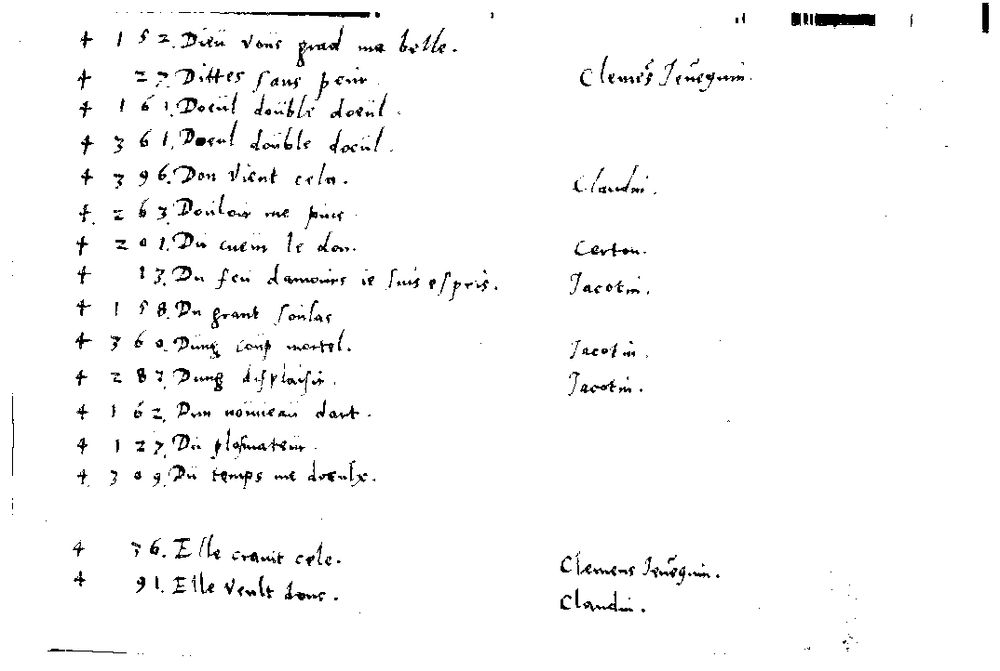 4 152. Dieu vous grad ma belle.
4 27. Dittes sans peur. Clemẽs Jeñequin.
4 161. Doeul double doeul.
4 361. Doeul double doeul.
4 396. Don vient cela. Claudin.
4 263. Douloir me puis
4 201. Du cueur le don. Certon.
4 13. Du feu damours ie suis espris. Jacotin.
4 158. Du grant soulas
4 360. Dung coup mortel. Jacotin.
4 287. Dung desplaisir. Jacotin.
4 162. Dun nouueau dart.
4 127. Du plasmateur.
4 309. Du temps me doeulx.
4 36. Elle craint cele. Clemens Jeñequin.
4 91. Elle veult donc. Claudin.